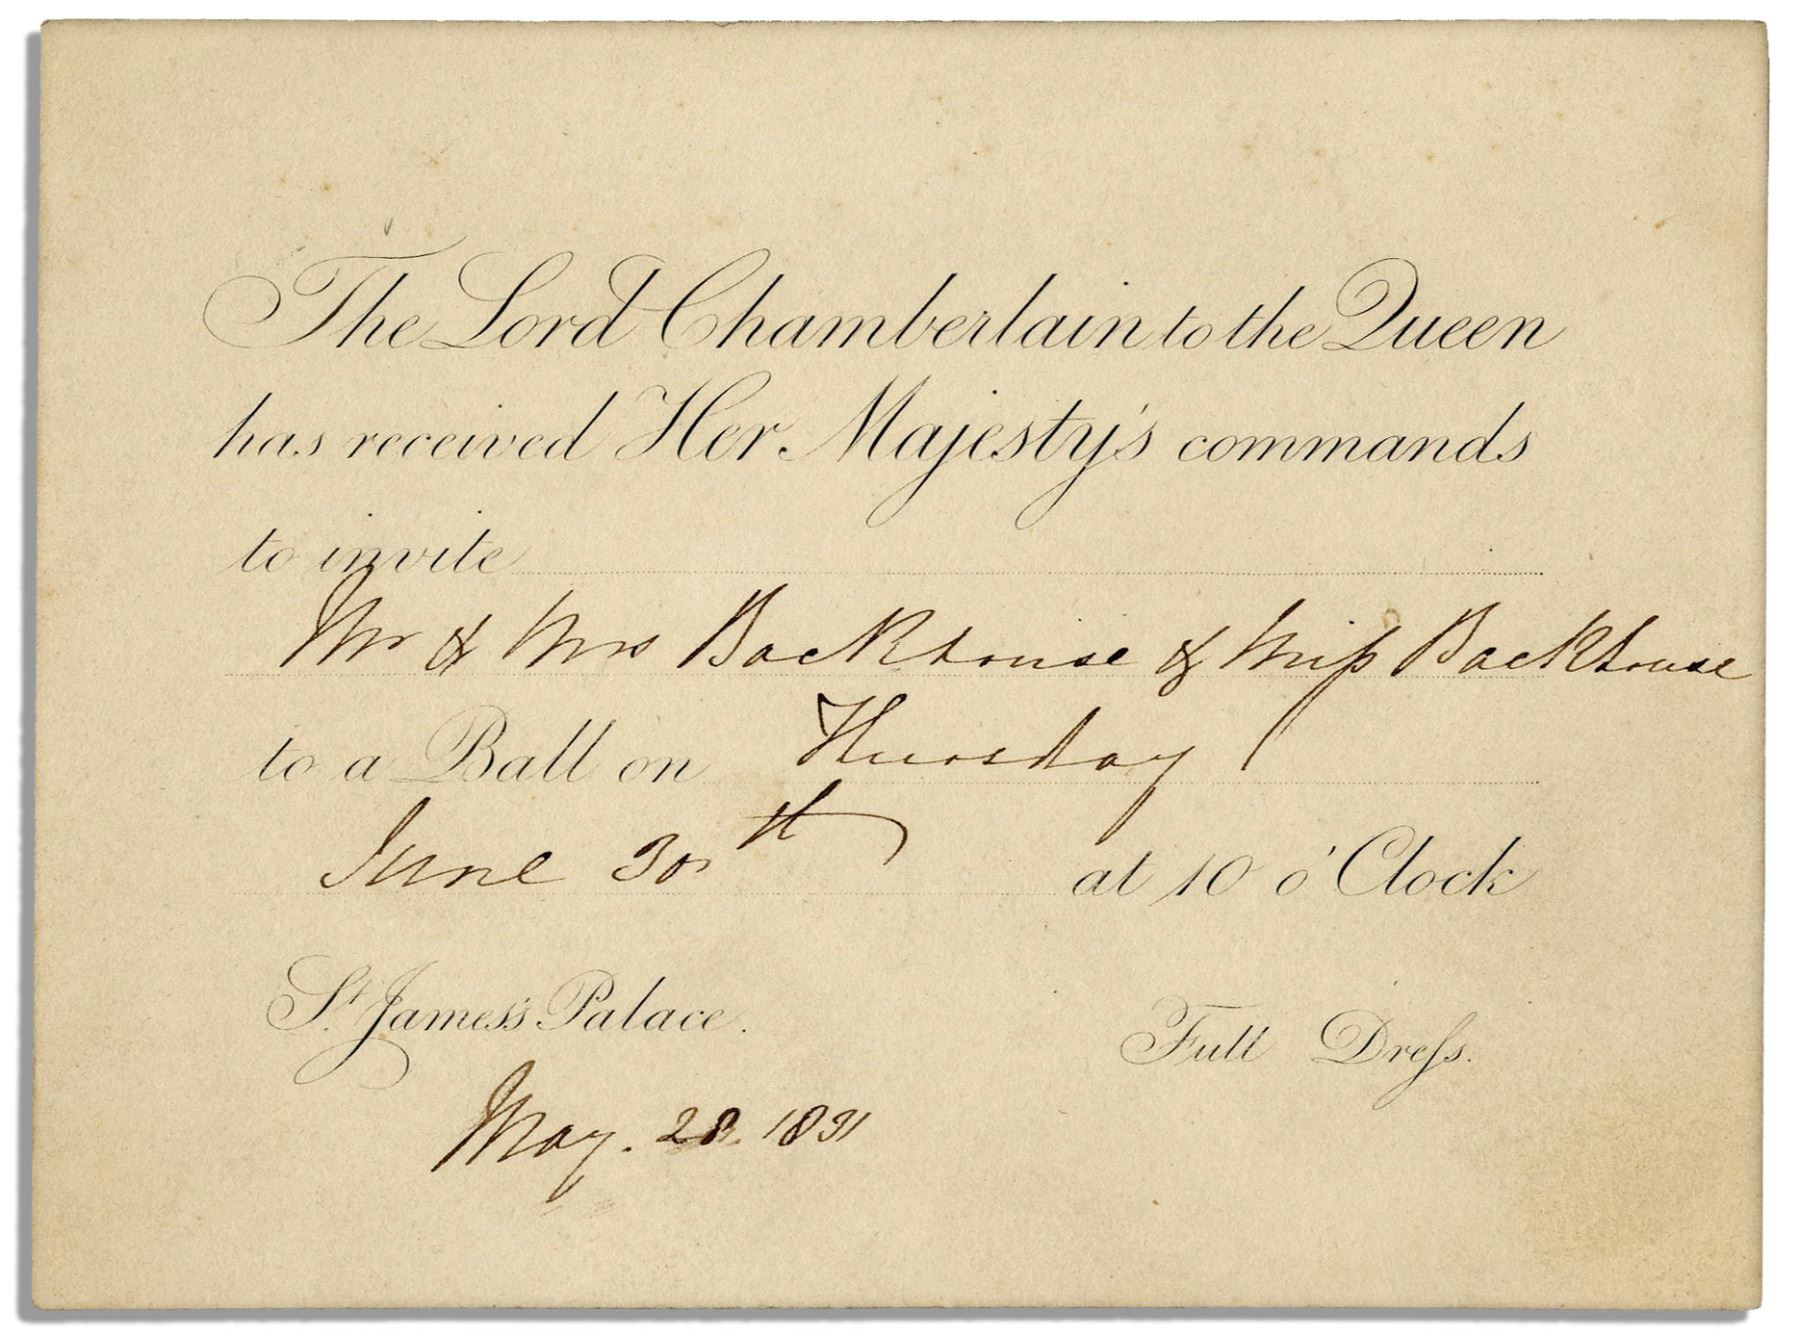 The Lord Chamberlain to the Queen
has received Her Majesty's commands
to invite
Mr & Mrs Backhouse & Miss Backhouse
to a Ball on Thursday
June 30th at 10 o'Clock
St James's Palace.
Full Dress.
May. 28. 1831